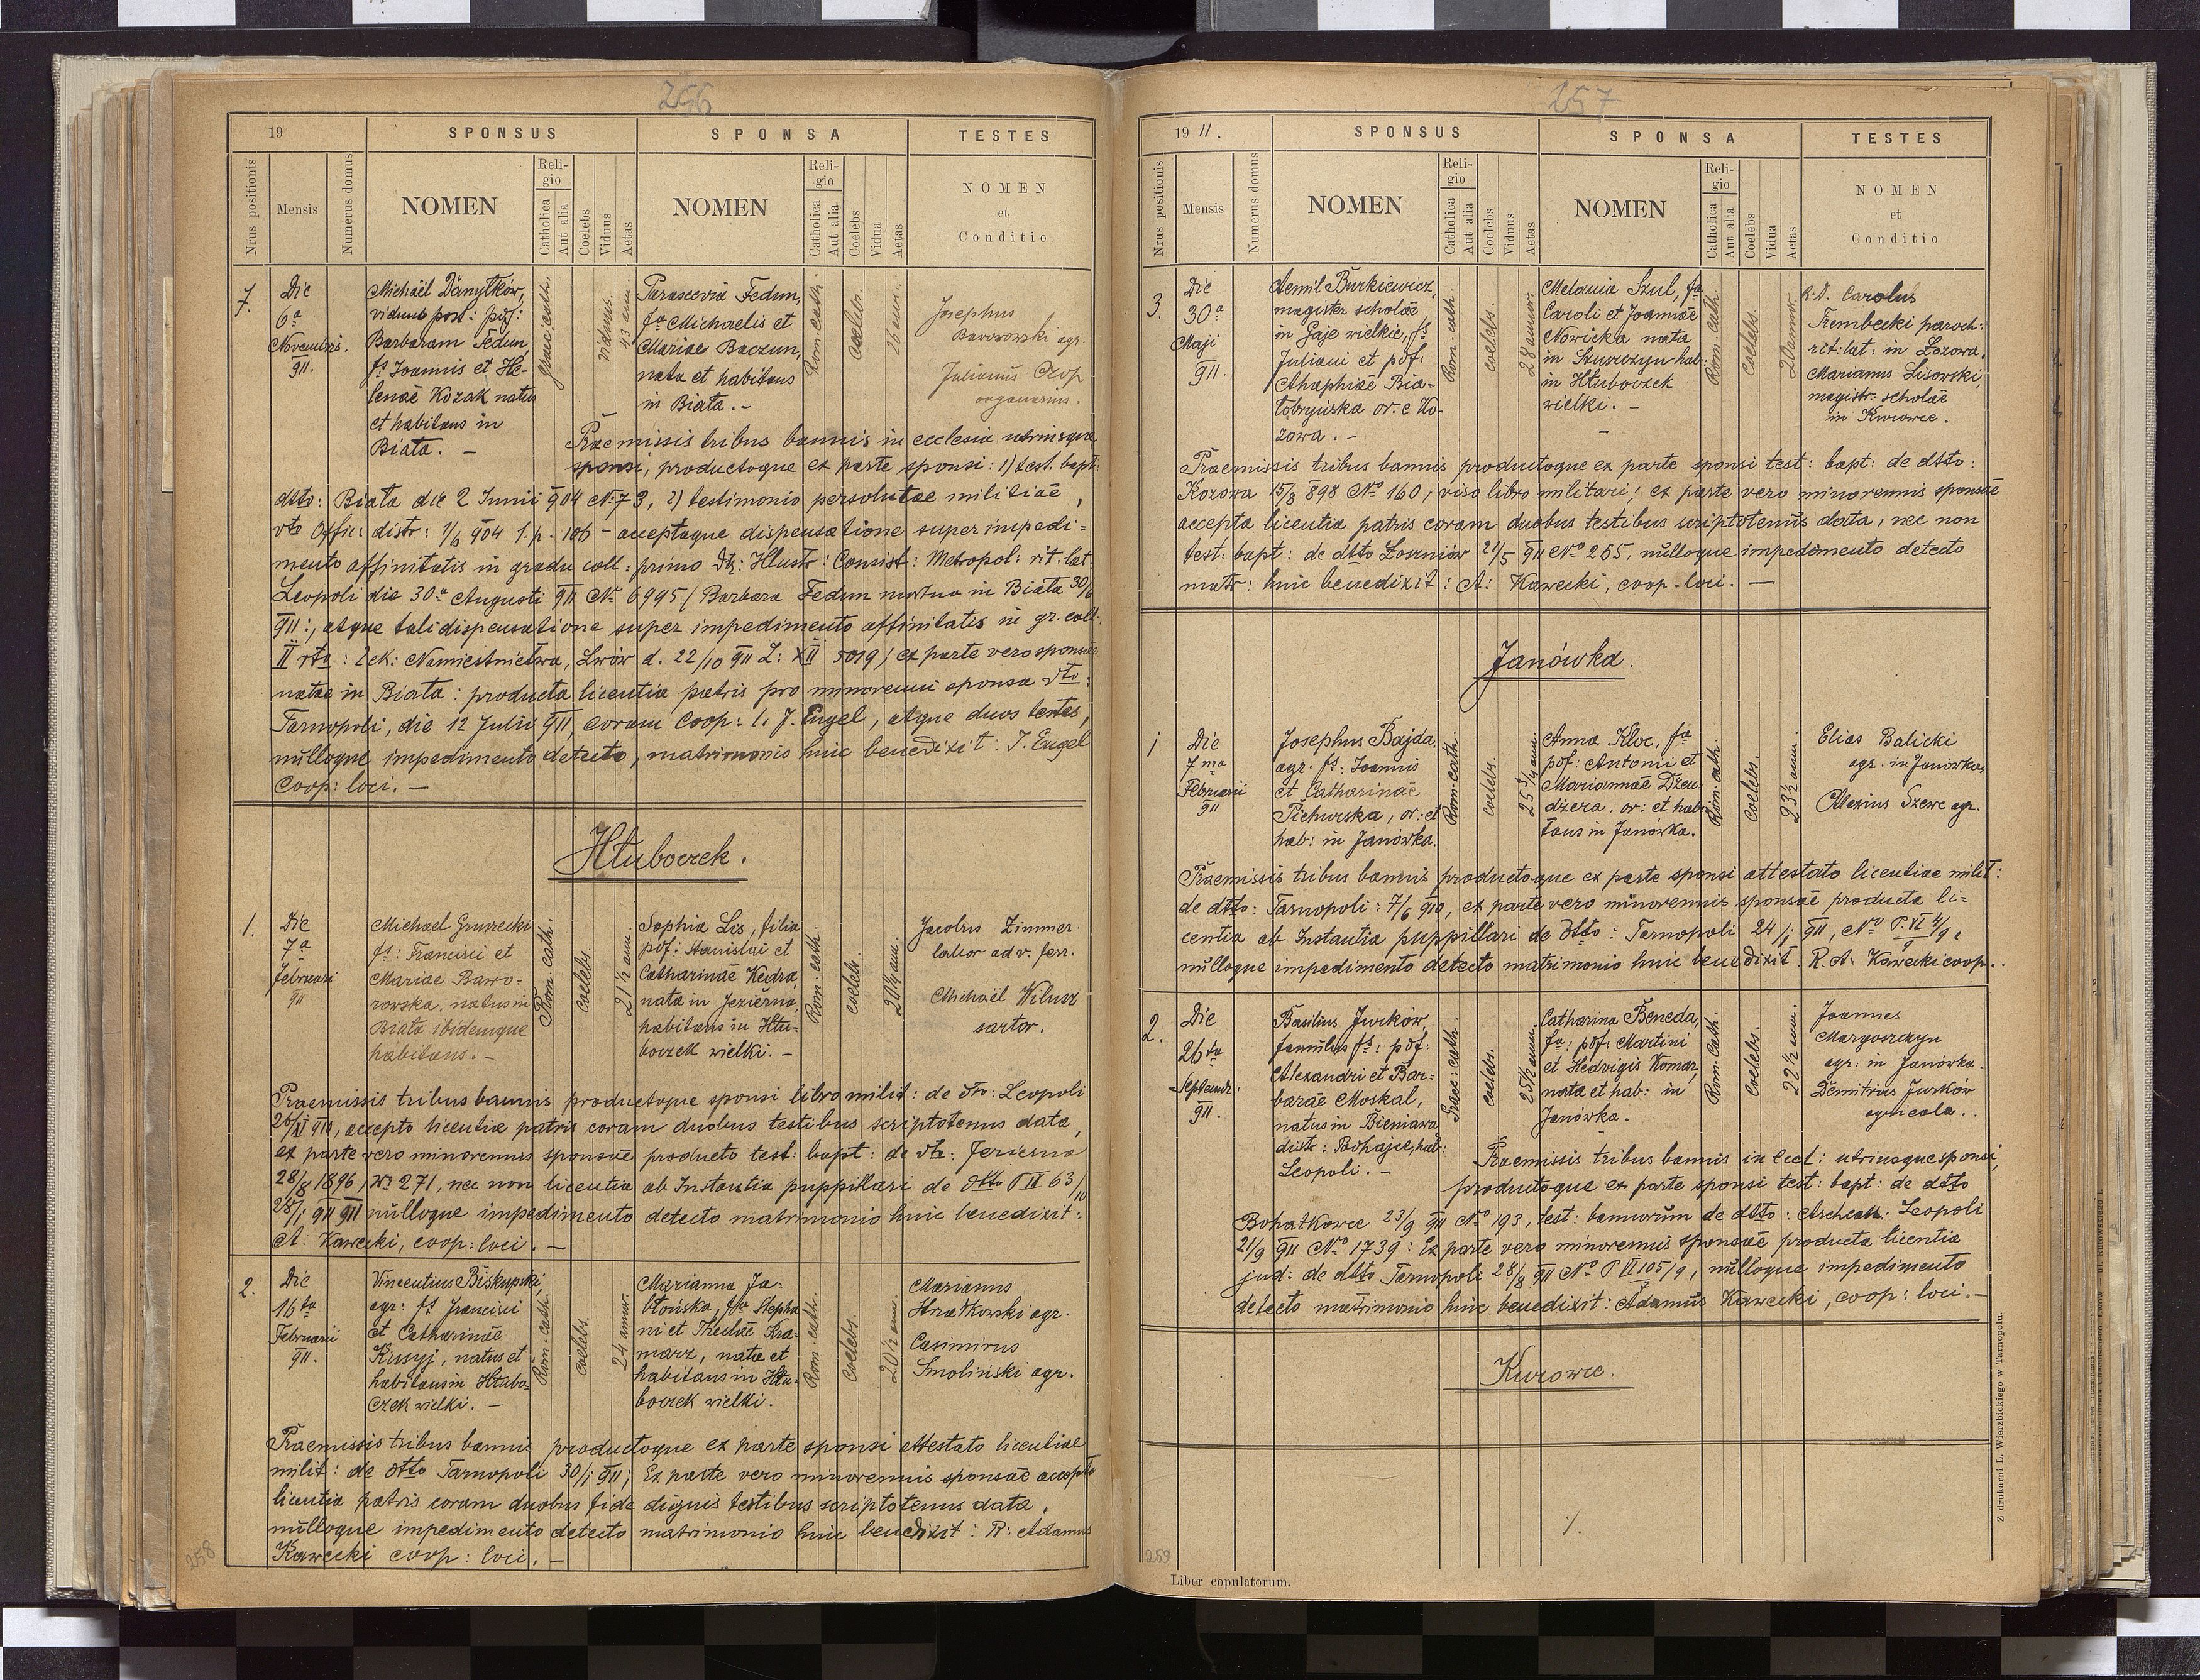 256
19
SPONSUS
SPONSA
TESTES
Nrus positionis
Mensis
Numerus domus
NOMEN
Religio
Catholica
Aut alia
Coelebs
Viduus
Aetas
NOMEN
Religio
Catholica
Aut alia
Coelebs
Vidua
Aetas
NOMEN
et
Conditio
7.
Die
6a
Novembris.
911.
Michaël Danytków,
viduus post: pdf:
Barbaram Fedun
fs Joannis et He-
lenae Kozak natus
et habitans in
Biała. —
graec. cath.
viduus.
43 ann.
Parascevia Fedun,
fa Michaelis et
Mariae Baczun,
nata et habitans
in Biała. —
Rom. cath.
coelebs.
Josephus
Baworowski agr.
Julianus Czop
organarius.
Praemissis tribus bannis in ecclesia utriusque
sponsi, productoque ex parte sponsi: 1) test. bapt:
dtto: Biała die 2 Junii 904 № 73, 2) testimonio persolutae militiae,
dto Offic: distr: 1/6 904 l. p. 106 – acceptaque dispensatione super impedi=
mento affinitatis in gradu coll: primo dtt: Illustr: Consist: Metropol: rit. lat.
Leopoli die 30a Augusti 911 № 6995 / Barbara Fedun mortua in Biała 30/6
911:, atque tali dispensatione super impedimento affinitatis in gr. coll.
II dto: Rek: Namiestnictwa, Lwów d. 22/10 911 L: XII 5019; ex parte vero sponsae
natae in Biała: producta licentia patris pro minorenni sponsa dto:
Tarnopoli, die 12 Julii 911, coram Coop: l. J. Engel, atque duos testes,
nulloque impedimento detecto, matrimonio huic benedixit: J. Engel
Coop: loci. —
Hłuboczek.
1.
Die
7a
Februarii
911
Michael Gruszecki
fs: Francisci et
Mariae Bawo-
rowska, natus in
Biała ibidemque
habitans. —
Rom. cath.
coelebs.
21½ ann.
Sophia Lis, filia
pdf: Stanislai et
Catharinae Kedra,
nata in Jezierna,
habitans in Hłu-
boczek wielki. —
Rom. cath.
coelebs.
Jacobus Zimmer
labor ad v. ferr.
Michaël Wilusz
sartor.
Praemissis tribus bannis productoque sponsi libro milit: de dto: Leopoli
26/XI 910, accepto licentiae patris coram duobus testibus scriptotenus data,
ex parte vero minorennis sponsae producto test: bapt: de dto: Jezierna
28/8 1896, № 271, nec non licentia ab Instantia puppillari de dtto P II 63/10
28/1 911 911 nulloque impedimento detecto matrimonio huic benedixit:
A. Kawecki, coop: loci. —
2.
Die
16ta
Februarii
911.
Vincentius Biskupski,
agr: fs Francisci
et Catharinae
Kusyj, natus et
habitans in Hłubo-
czek wielki. —
Rom. cath.
coelebs.
24 annor.
Marianna Ja-
błońska, fa Stepha
ni et Theclae Kra-
marz, nata et
habitans in Hłu-
boczek wielki.
Rom. cath.
coelebs.
20½ ann.
Marianus
Hnatkowski agr.
Casimirus
Smoliński agr.
Praemissis tribus bannis productoque ex parte sponsi attestato licentiae
milit: de dtto Tarnopoli 30/1 911; Ex parte vero minorennis sponsae accepta
licentia patris coram duobus fide dignis testibus scriptotenus data,
nulloque impedimento detecto matrimonio huic benedixit: R: Adamus
Kawecki coop: loci. —
258
257
1911.
SPONSUS
SPONSA
TESTES
Nrus positionis
Mensis
Numerus domus
NOMEN
Religio
Catholica
Aut alia
Coelebs
Viduus
Aetas
NOMEN
Religio
Catholica
Aut alia
Coelebs
Vidua
Aetas
NOMEN
et
Conditio
3.
Die
30a
Maji
911.
Aemil Burkiewicz,
magister scholae
in Gaje wielkie, fs
Juliani et pdf:
Ahaphiae Bia-
łobryuska or. e Ko-
zowa. —
Rom. cath.
coelebs.
28 annor.
Melania Szul, fa
Caroli et Joannae
Nowicka nata
in Szuszczyn hab:
in Hłuboczek
wielki. —
Rom. cath.
coelebs.
20 annor.
R. D. Carolus
Trembecki paroch:
rit: lat: in Łozowa.
Marianus Lisowski,
magistr. scholae
in Kurowce.
Praemissis tribus bannis productoque ex parte sponsi test: bapt: de dtto:
Kozowa 15/8 898 № 160, viso libro militari; ex parte vero minorennis sponsae
accepta licentia patris coram duobus testibus scriptotenus data, nec non
test: bapt: de dtto Łoszniów 21/5 911 № 265, nulloque impedimento detecto
matr: huic benedixit: A: Kawecki, coop. loci. —
Janówka.
1
Die
7ma
Februarii
911
Josephus Bajda,
agr. fs: Joannis
et Catharinae
Pichurska, or: et
hab: in Janówka.
Rom. cath.
coelebs.
25¾ ann.
Anna Kloc, fa
pdf: Antonii et
Mariannae Dżen-
dżera, or: et habi-
tans in Janówka.
Rom. cath.
coelebs.
23½ ann.
Elias Balicki
agr. in Janówka,
Alexius Szewc agr.
Praemissis tribus bannis productoque ex parte sponsi attestato licentiae milit:
de dtto: Tarnopoli: 7/6 910, ex parte vero minorennis sponsae producta li-
centia ab Instantia puppillari de dtto: Tarnopoli 24/1 911, № P. VI 4/9,
nulloque impedimento detecto matrimonio huic benedixit R. A. Kawecki coop.
2.
Die
26ta
Septembr.
911.
Basilius Jurków,
famulus fs: pdf:
Alexandri et Bar-
barae Moskal,
natus in Bieniawa
distr: Podhajce, hab:
Leopoli. —
Graec: cath.
coelebs.
25½ ann.
Catharina Beneda,
fa: pdf: Martini
et Hedvigis Komar,
nata et hab: in
Janówka.
Rom. cath.
coelebs.
22½ ann.
Joannes
Margoszczyn
agr: in Janówka.
Demitrius Jurków
agricola.
Praemissis tribus bannis in Eccl: utriusque sponsi,
productoque ex parte sponsi test: bapt: de dtto
Bohatkowce 23/9 911 № 193, test: bannorum de dtto: Archcath: Leopoli
21/9 911 № 1739: Ex parte vero minorennis sponsae producta licentia
jud: de dtto Tarnopoli 28/8 911 № P VI 105/9, nulloque impedimento
detecto matrimonio huic benedixit: Adamus Kawecki, coop: loci. —
Kurowce.
·/.
259
Liber copulatorum.
Z drukarni L. Wierzbickiego w Tarnopolu.